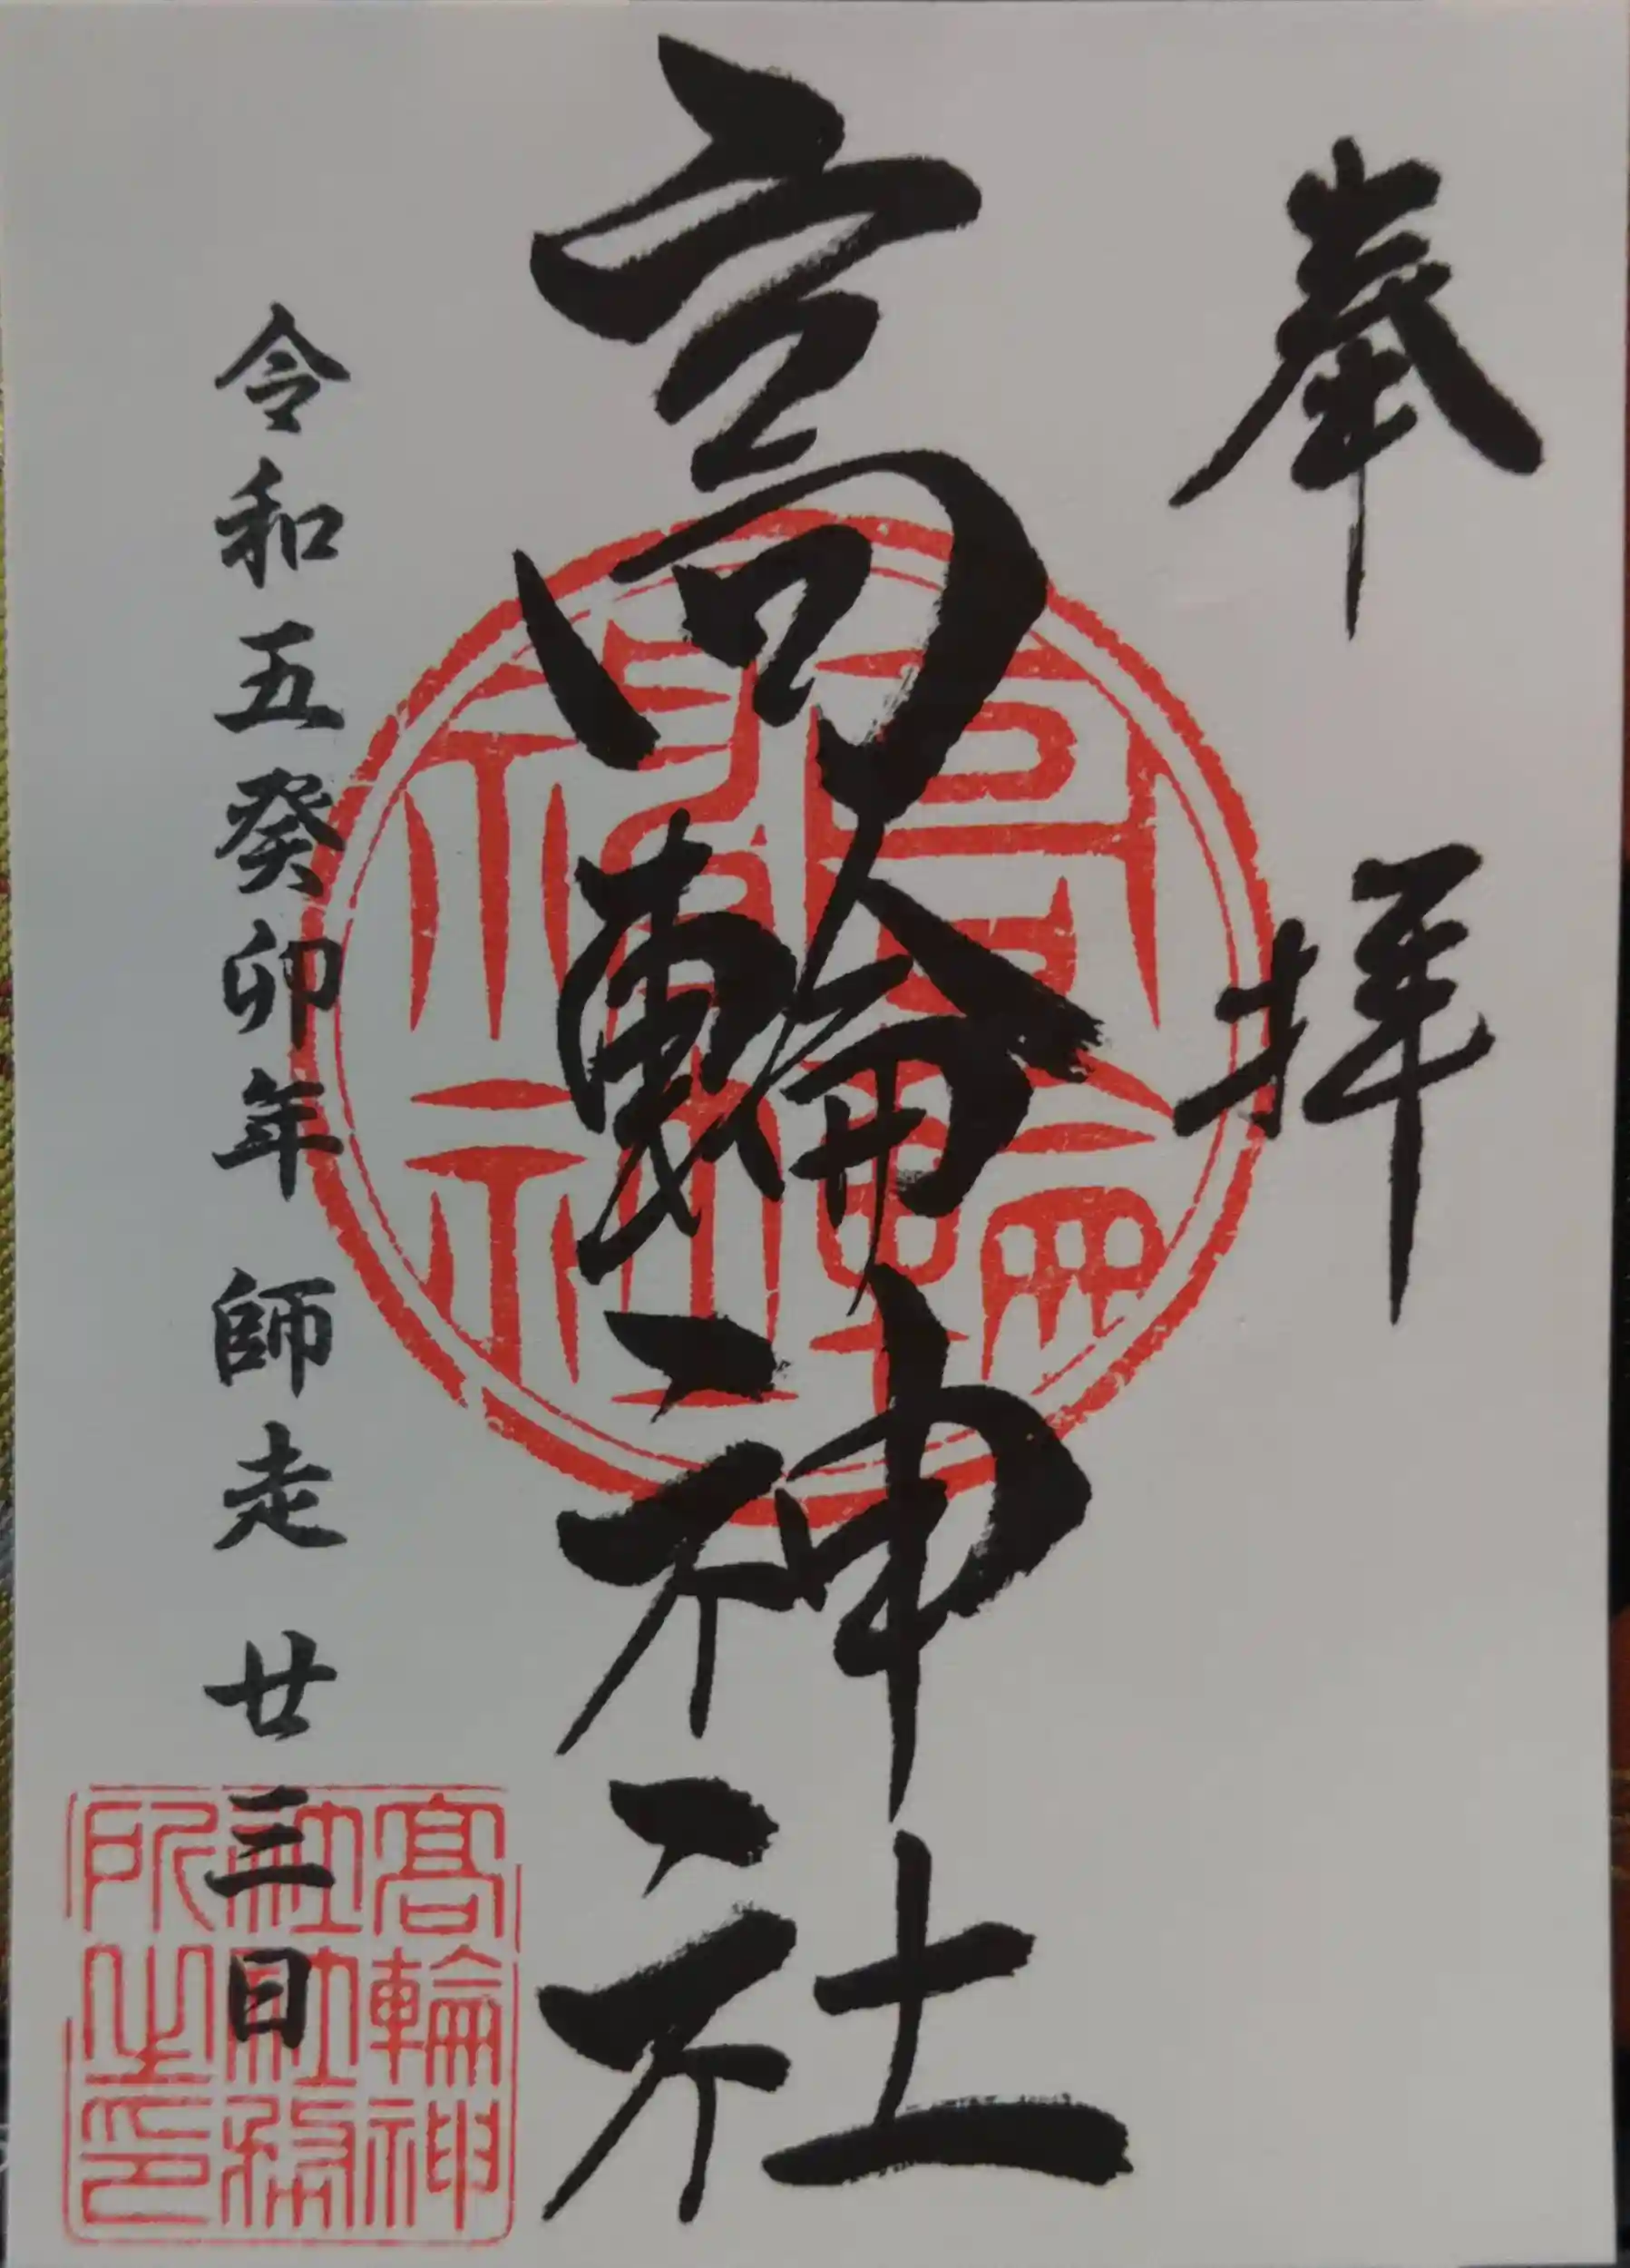 奉拝
高輪神社
令和五癸卯年 師走 廿三日
高輪神
社社務
所之印